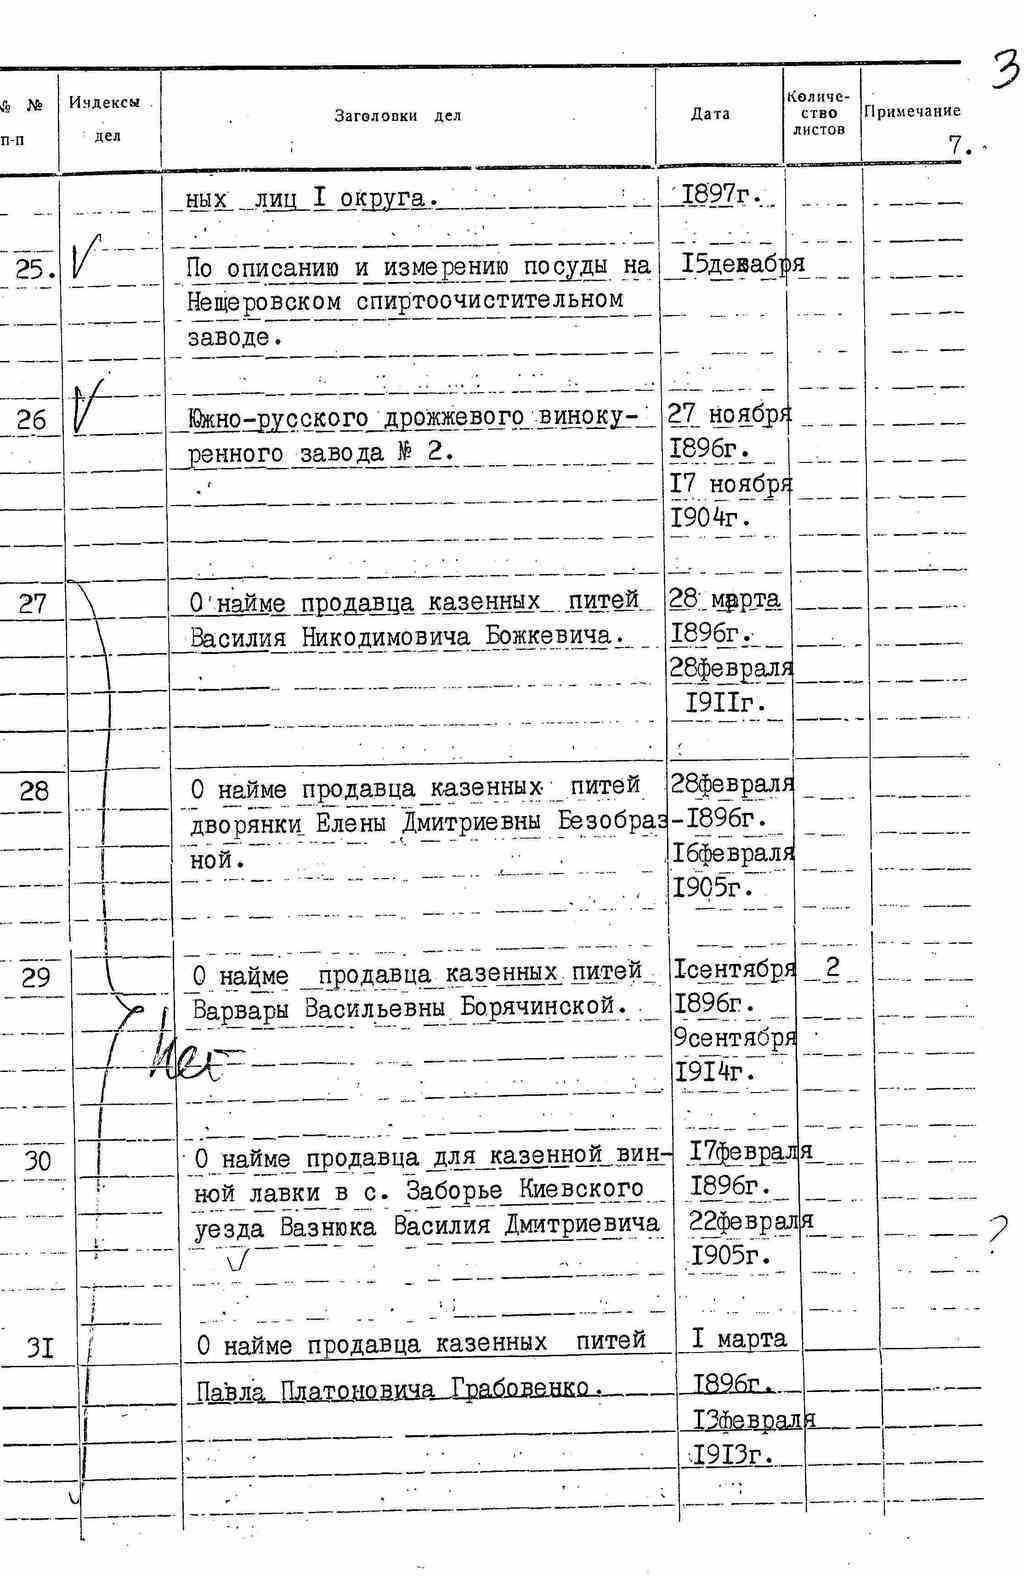 3
№ № п-п
Индексы дел
Заголовки дел
Дата
Количе-
ство
листов
Примечание
7.
ных лиц I округа. 1897г.
25. По описанию и измерению посуды на 15декабря
Нещеровском спиртоочистительном
заводе.
26 Южно-русского дрожжевого виноку- 27 ноября
ренного завода № 2. 1896г.
17 ноября
1904г.
27 О найме продавца казенных питей 28 марта
Василия Никодимовича Божкевича. 1896г.
28февраля
1911г.
28 О найме продавца казенных питей 28февраля
дворянки Елены Дмитриевны Безобраз- 1896г.
ной. 16февраля
1905г.
29 О найме продавца казенных питей Iсентября 2
Варвары Васильевны Борячинской. 1896г.
9сентября
Нет
1914г.
30 О найме продавца для казенной вин- 17февраля
ной лавки в с. Заборье Киевского 1896г.
уезда Вазнюка Василия Дмитриевича 22февраля ?
1905г.
31 О найме продавца казенных питей I марта
Павла Платоновича Грабовенко. 1896г.
13февраля
1913г.